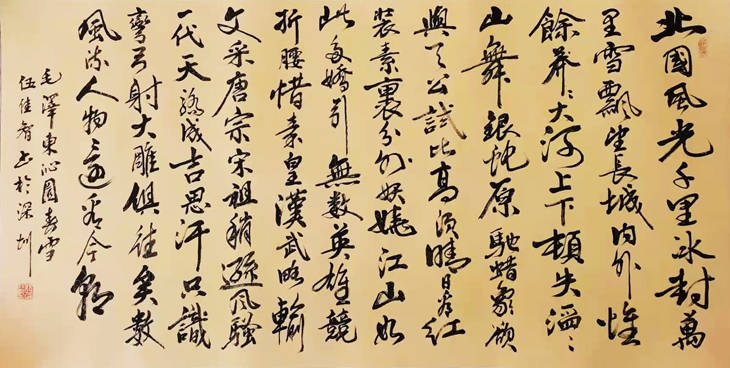 北國風光千里冰封萬
里雪飄望長城内外惟
餘莽〻大河上下頓失滔〻
山舞銀蛇原馳蜡象欲
與天公試比高須晴日看紅
裝素裹分外妖嬈江山如
此多嬌引無數英雄競
折腰惜秦皇漢武略輸
文采唐宗宋祖稍遜風騷
一代天驕成吉思汗只識
彎弓射大雕俱往矣數
風流人物還看今朝
毛澤東沁園春雪
伍佳智书於深圳